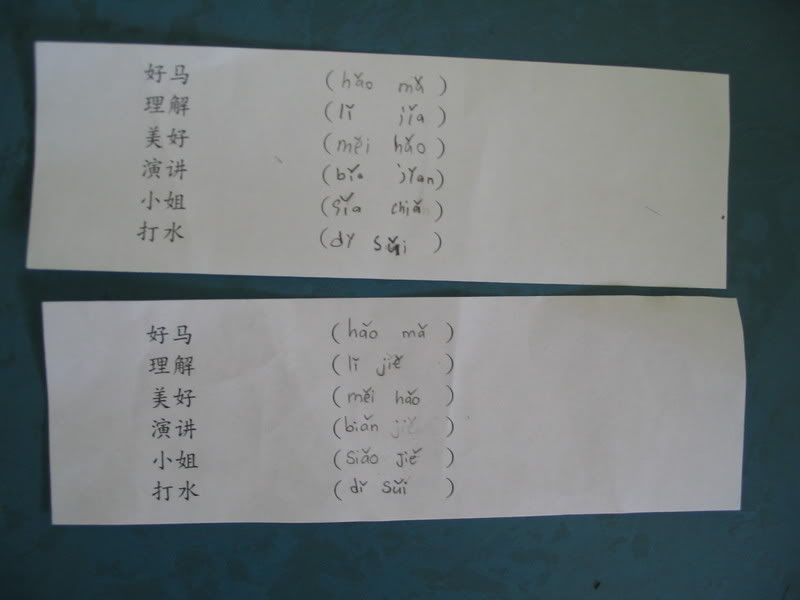 好马 (hǎo mǎ)
理解 (lǐ jǐa)
美好 (měi hǎo)
演讲 (bǐa jǐan)
小姐 (sǐa chiǎn)
打水 (dy sǔi)
好马 (hǎo mǎ)
理解 (lǐ jiě)
美好 (měi hǎo)
演讲 (biǎn jiě)
小姐 (siǎo jiě)
打水 (dǐ sǔi)